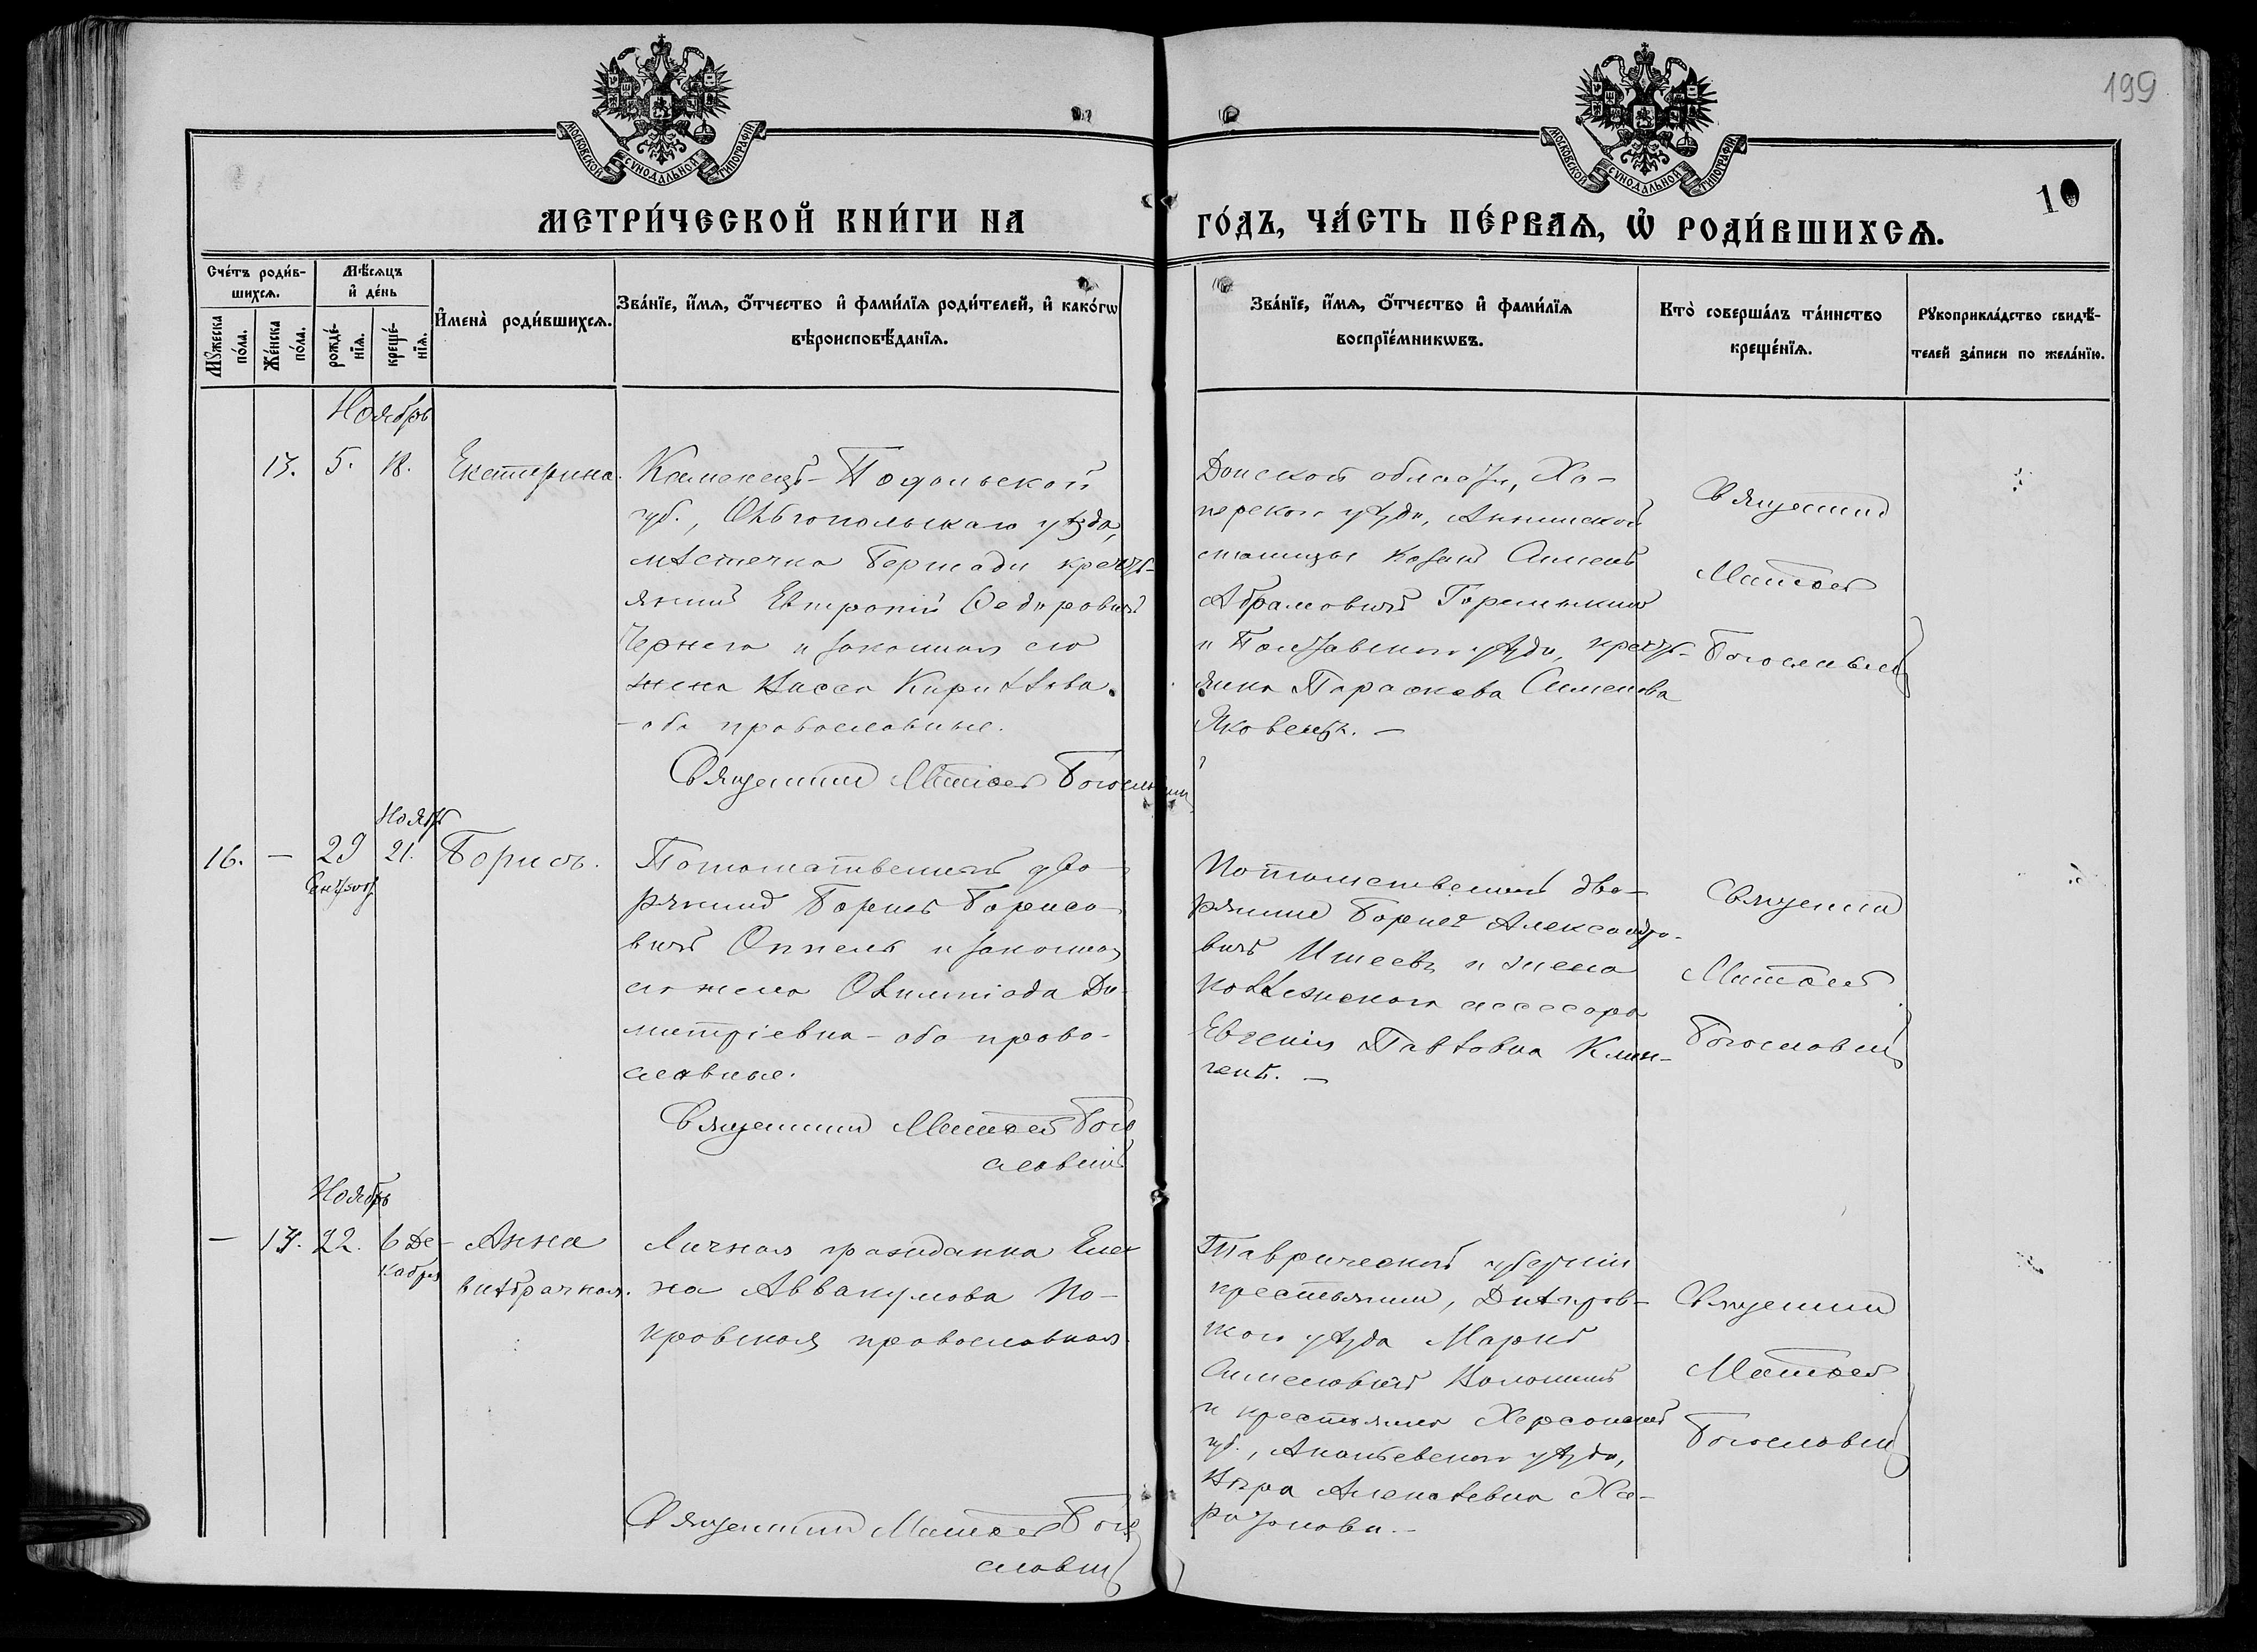 199
МОСКОВСКОЙ СѴНОДАЛЬНОЙ ТИПОГРАФІИ
МОСКОВСКОЙ СѴНОДАЛЬНОЙ ТИПОГРАФІИ
10
МЕТРИ́ЧЕСКОЙ КНИ́ГИ НА
ГО́ДЪ, ЧА́СТЬ ПЕ́РВАѦ, Ѡ҆ РОДИ́ВШИХСѦ.
Сче́тъ роди́в-
шихсѧ.
Мѣ́сѧцъ
и҆ де́нь
Мꙋ́жеска
по́ла.
Же́нска
по́ла.
рожде́-
нїѧ.
креще́-
нїѧ.
И҆мена̀ роди́вшихсѧ.
Зва́нїе, и҆́мѧ, ѻ҆́тчество и҆ фами́лїѧ роди́телей, и҆ како́гѡ
вѣроисповѣ́данїѧ.
Зва́нїе, и҆́мѧ, ѻ҆́тчество и҆ фами́лїѧ
воспрїе́мникѡвъ.
Кто̀ соверша́лъ та́инство
креще́нїѧ.
Рꙋкоприкла́дство свидѣ́-
телей за́писи по жела́нїю.
Ноябрь
13. 5. 18. Екатерина.
Каменецъ-Подольской
губ., Ольгопольскаго уѣзда,
мѣстечка Бершади кресть-
янинъ Евтропій Ѳедоровичъ
Чернега и законная его
жена Васса Кириллова.
- оба православные.
Священникъ Матѳей Богословскій
Донской области, Хо-
перскаго уѣзда, Аннинской
станицы казакъ Симеонъ
Абрамовичъ Горемыкинъ
и Полтавскаго уѣзда, кресть-
янка Параскева Симеонова
Яковенко. —
Священникъ
Матѳей
Богословскій
Ноябрь
16. — 29 21. Борисъ.
Потомственный дво-
рянинъ Борисъ Борисо-
вичъ Оппель и законная
его жена Олимпіада Ди-
митріевна - оба право-
славные.
Священникъ Матѳей Бого
словскій
Потомственный дво-
рянинъ Борисъ Александро-
вичъ Ишеевъ и жена
коллежскаго ассесора
Евгенія Павловна Клин-
генъ. —
Священникъ
Матѳей
Богословскій
Ноябрь
— 14. 22. 6 Де-
кабря
Анна
внѣбрачная.
Личная гражданка Еле
на Аввакумова По-
кровская православная.
Священникъ Матѳей Бого
словскій
Таврической губерніи
крестьянинъ, Днѣпров-
скаго уѣзда Маркъ
Симеоновичъ Волошинъ
и крестьянка Херсонской
губ., Ананьевскаго уѣзда,
Вѣра Алексѣевна Ха-
ритонова. —
Священникъ
Матѳей
Богословскій